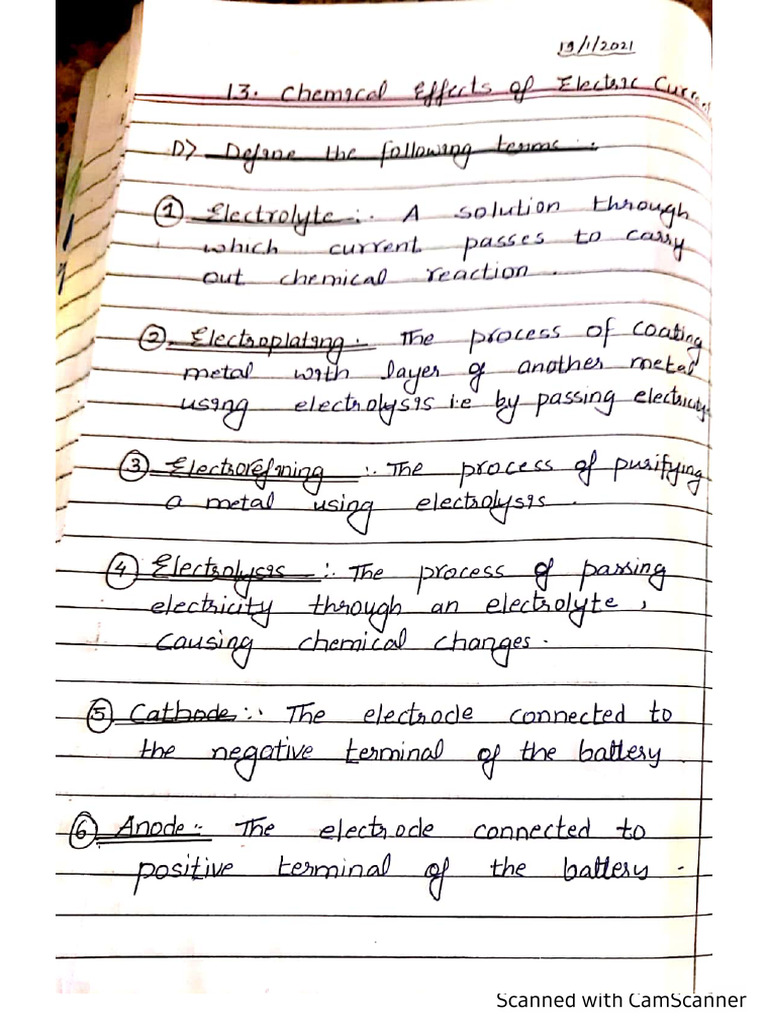 19/1/2021
13. Chemical Effects of Electric Curre
D) Define the following terms :
① Electrolyte :- A solution through
which current passes to carry
out chemical reaction .
② Electroplating :- The process of coating
metal with layer of another metal
using electrolysis i.e by passing electricity
③ Electrorefining :- The process of purifying
a metal using electrolysis .
④ Electrolysis :- The process of passing
electricity through an electrolyte ,
causing chemical changes .
⑤ Cathode :- The electrode connected to
the negative terminal of the battery
⑥ Anode :- The electrode connected to
positive terminal of the battery .
Scanned with CamScanner